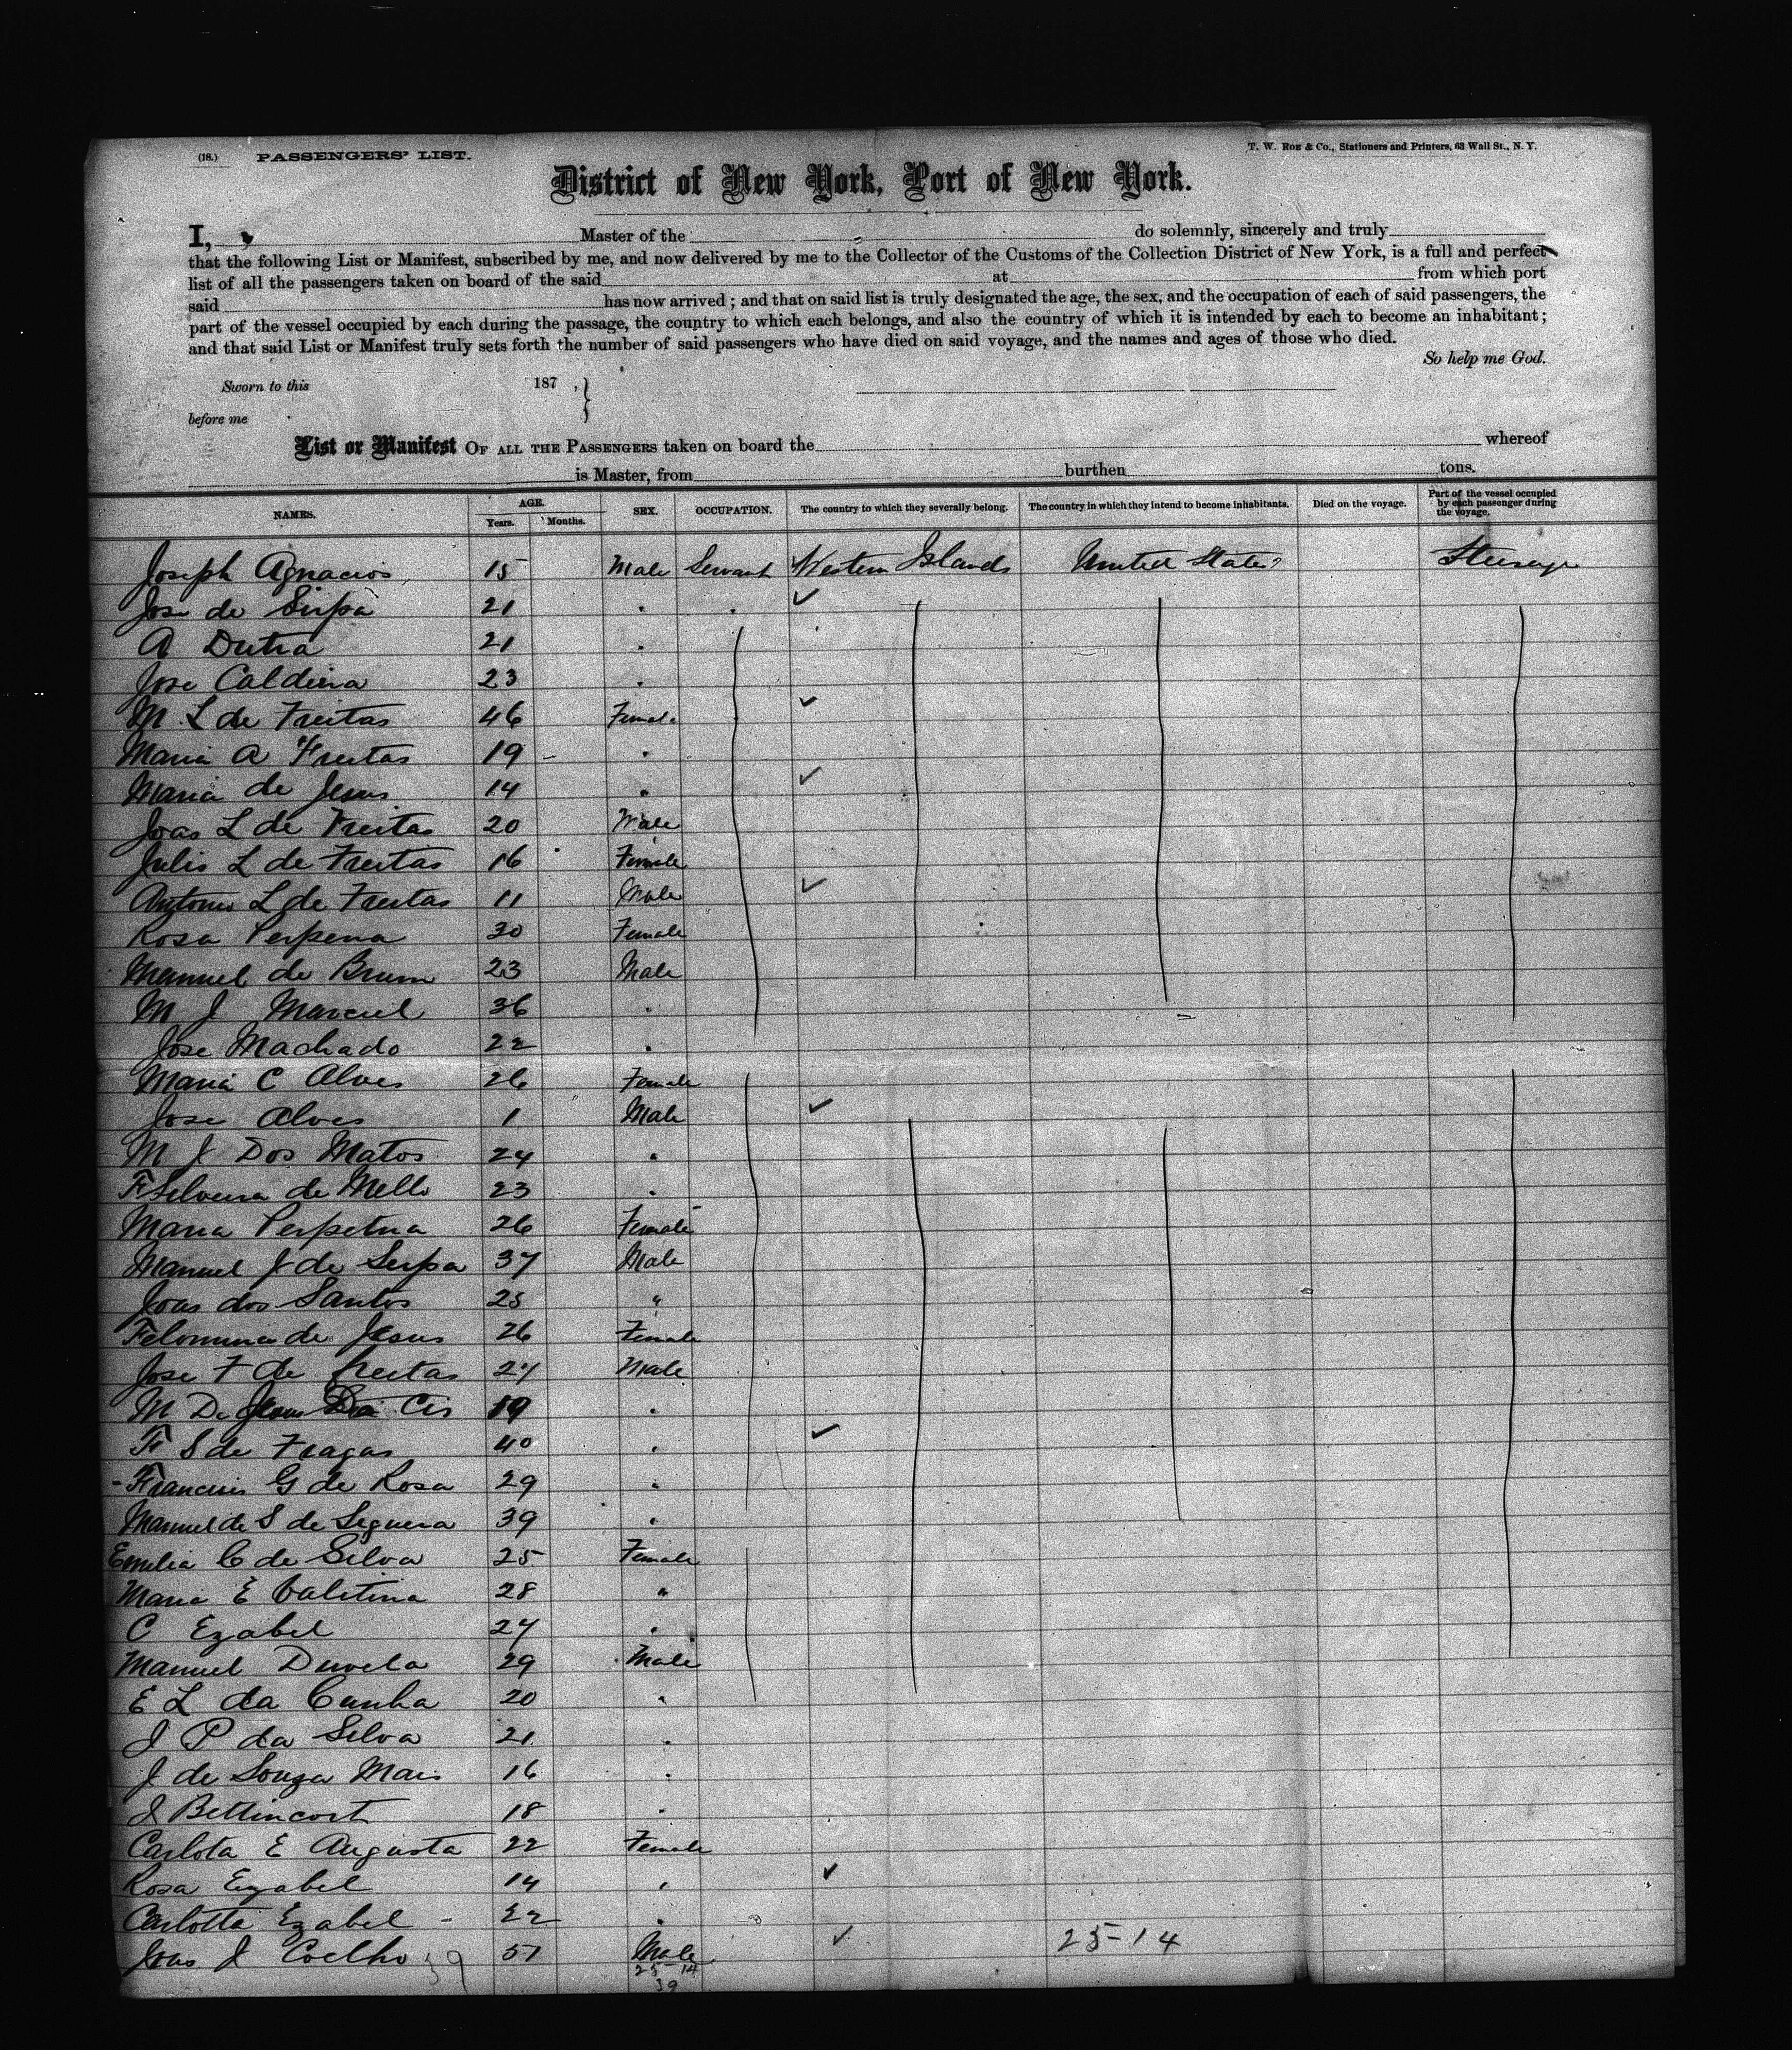 (18.) PASSENGERS' LIST. T. W. ROE & CO., Stationers and Printers, 63 Wall St., N. Y.
District of New York, Port of New York.
I, Master of the do solemnly, sincerely and truly
that the following List or Manifest, subscribed by me, and now delivered by me to the Collector of the Customs of the Collection District of New York, is a full and perfect
list of all the passengers taken on board of the said at from which port
said has now arrived; and that on said list is truly designated the age, the sex, and the occupation of each of said passengers, the
part of the vessel occupied by each during the passage, the country to which each belongs, and also the country of which it is intended by each to become an inhabitant;
and that said List or Manifest truly sets forth the number of said passengers who have died on said voyage, and the names and ages of those who died.
So help me God.
Sworn to this 187 ,
before me
List or Manifest OF ALL THE PASSENGERS taken on board the whereof
is Master, from burthen tons.
NAMES. AGE. Years. Months. SEX. OCCUPATION. The country to which they severally belong. The country in which they intend to become inhabitants. Died on the voyage. Part of the vessel occupied by each passenger during the voyage.
Joseph Agnacios 15 Male Servant Western Islands United States Steerage
Jose de Sirpa 21 "
A Dutra 21 "
Jose Caldiera 23 "
M L de Freitas 46 Female
Maria A Freitas 19 "
Maria de Jesus 14 "
Joas L de Freitas 20 Male
Julis L de Freitas 16 Female
Antonio L de Freitas 11 Male
Rosa Perpena 30 Female
Manuel de Brum 23 Male
M J Marciel 36 "
Jose Machado 22 "
Maria C Alves 26 Female
Jose Alves 1 Male
M J Dos Matos 24 "
F Silveira de Mello 23 "
Maria Perpetua 26 Female
Manuel J de Serpa 37 Male
Joas dos Santos 25 "
Felomina de Jesus 26 Female
Jose F de Freitas 27 Male
M De Jesus Da 19 "
F S de Fragas 40 "
Francisis G de Rosa 29 "
Manuel de S de Seguera 39 "
Emilia C de Silva 25 Female
Maria E Valitina 28 "
C Ezabel 24 "
Manuel Duvela 29 Male
E L da Cunha 20 "
J P da Silva 21 "
J de Souza Mais 16 "
J Bettincort 18 "
Carlota E Augusta 22 Female
Rosa Ezabel 14 "
Carlotta Ezabel 22 "
Joas J Coelho 39 51 Male 25-14
25-14
39